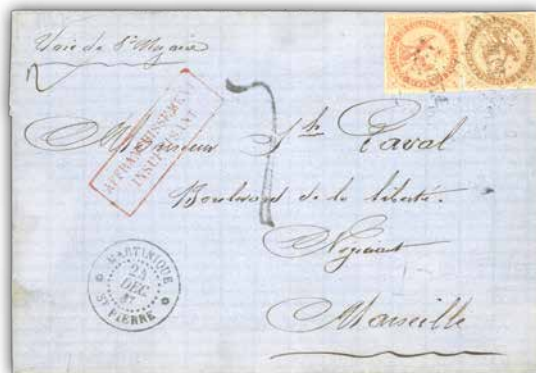 Voie de St Nazaire
AFFRANCHISSEMENT
INSUFFISANT
7
Monsieur Jh Laval
Boulevard de la liberté.
Négociant
Marseille
MARTINIQUE
24
DEC.
ST PIERRE